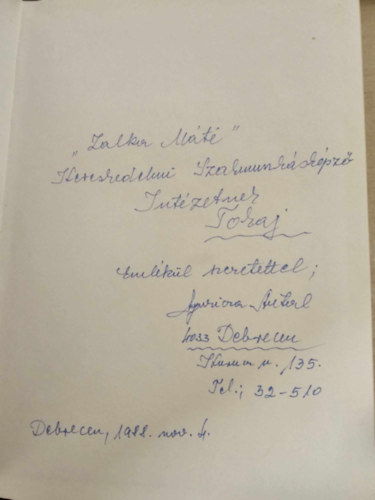 „Zalka Máté"
Kereskedelmi Szakmunkásképző
Intézetnek
Tokaj
Emlékül szeretettel;
Antal
4033 Debrecen
u. 135.
Tel.; 32-510
Debrecen, 1988. nov. 4.